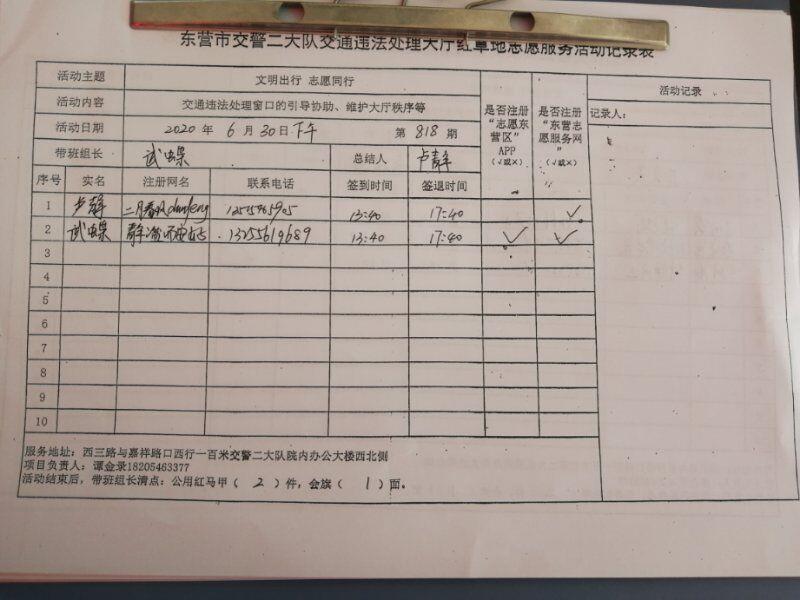 东营市交警二大队交通违法处理大厅红草地志愿服务活动记录表
活动主题 文明出行 志愿同行
活动内容 交通违法处理窗口的引导协助、维护大厅秩序等
活动日期 2020 年 6 月 30 日下午 第 818 期
是否注册“志愿东营区”APP(√或×)
是否注册“东营志愿服务网”(√或×)
活动记录
记录人:
带班组长 武 总结人 卢静
序号 实名 注册网名 联系电话 签到时间 签退时间
1 卢静 二月春风 13:40 17:40 ✓
2 武 13255619689 13:40 17:40 ✓ ✓
3
4
5
6
7
8
9
10
服务地址:西三路与嘉祥路口西行一百米交警二大队院内办公大楼西北侧
项目负责人:谭金录18205463377
活动结束后,带班组长清点:公用红马甲( 2 )件,会旗( 1 )面。